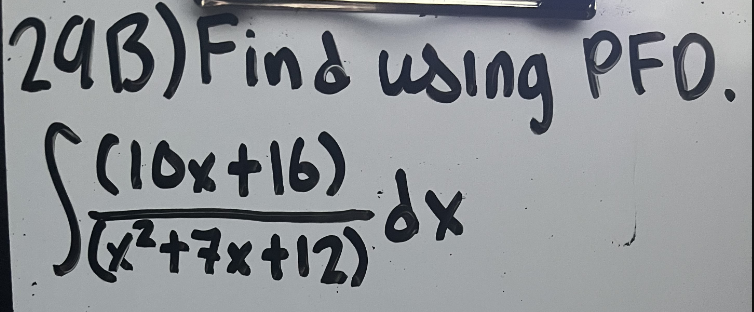 29B) Find using PFD.
∫ (10x+16)
(x²+7x+12) dx